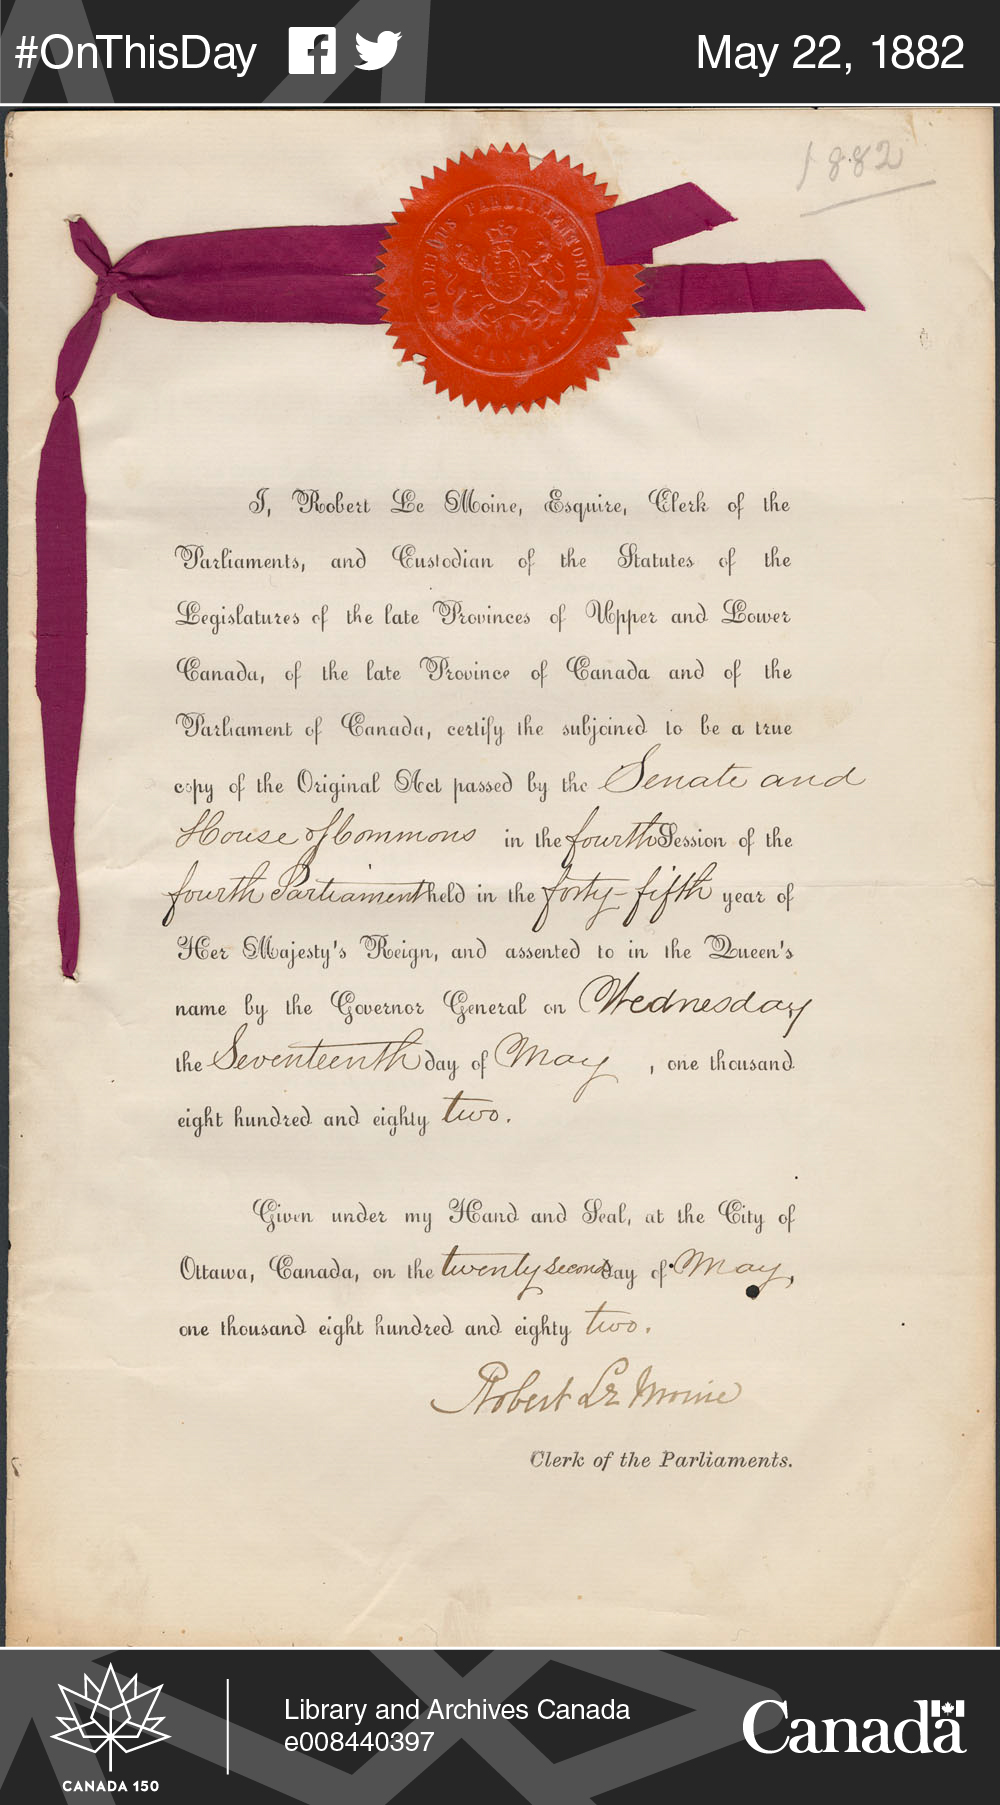 #OnThisDay
May 22, 1882
1882
PARLIAMENTORUM
CANADA
I, Robert Le Moine, Esquire, Clerk of the
Parliaments, and Custodian of the Statutes of the
Legislatures of the late Provinces of Upper and Lower
Canada, of the late Province of Canada and of the
Parliament of Canada, certify the subjoined to be a true
copy of the Original Act passed by the Senate and
House of Commons in the fourth Session of the
fourth Parliament held in the forty-fifth year of
Her Majesty's Reign, and assented to in the Queen's
name by the Governor General on Wednesday
the Seventeenth day of May , one thousand
eight hundred and eighty two.
Given under my Hand and Seal, at the City of
Ottawa, Canada, on the twenty second day of May,
one thousand eight hundred and eighty two.
Robert Le Moine
Clerk of the Parliaments.
CANADA 150
Library and Archives Canada
e008440397
Canada